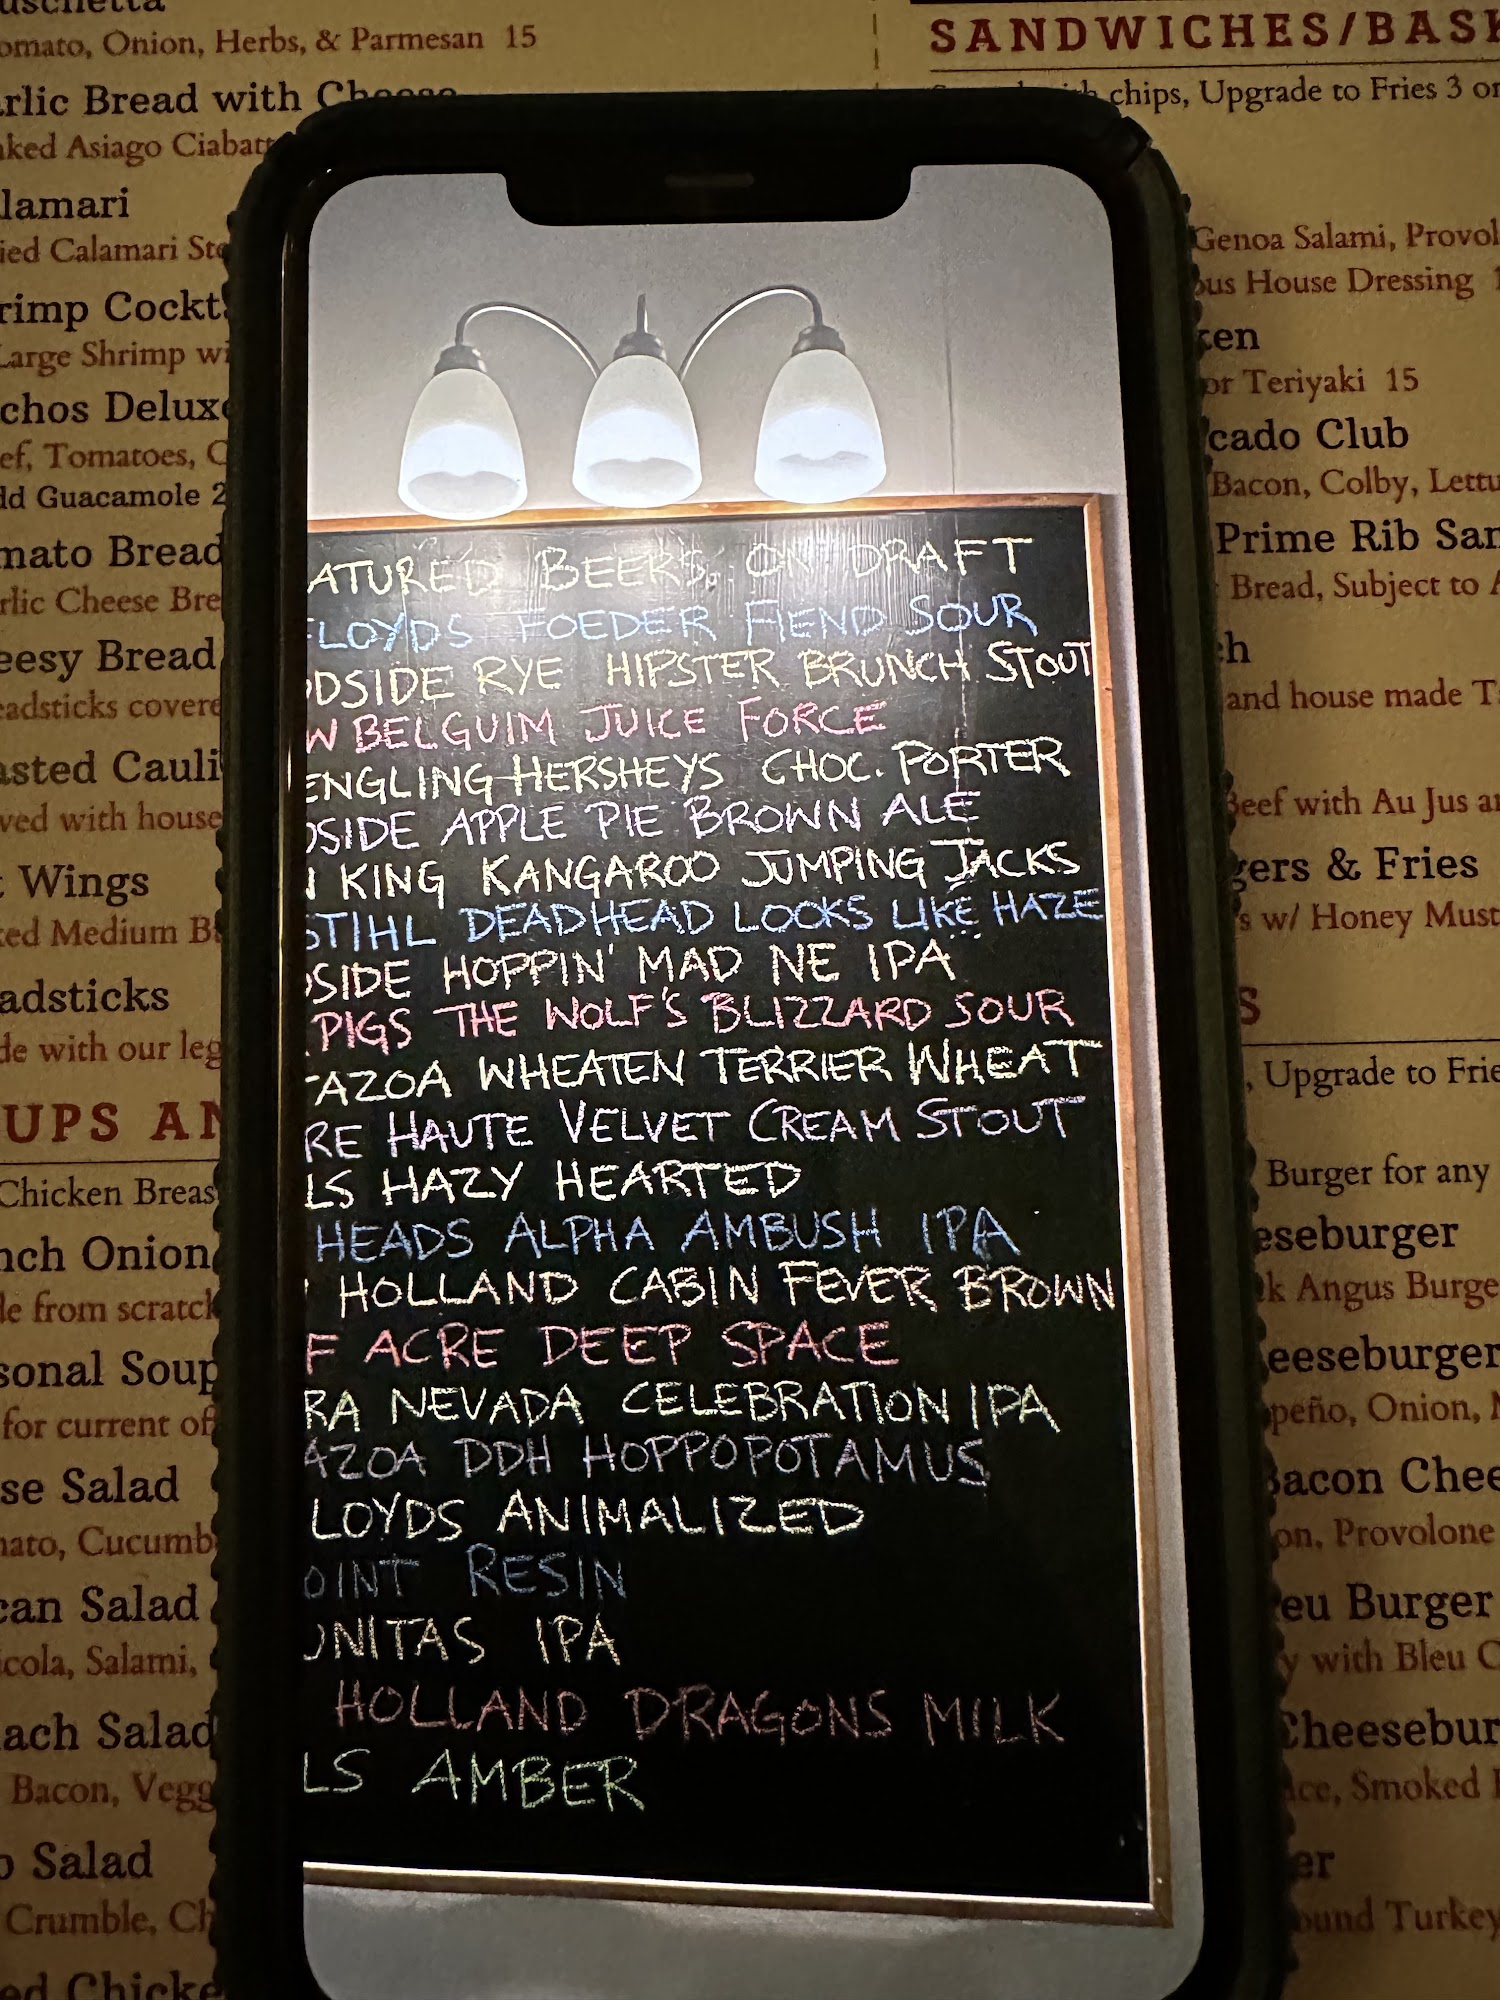 uschetta
omato, Onion, Herbs, & Parmesan 15
rlic Bread with Cheese
ked Asiago Ciabatt
lamari
ied Calamari Ste
rimp Cockt
Large Shrimp wi
chos Deluxe
ef, Tomatoes, C
dd Guacamole 2
mato Bread
rlic Cheese Bre
eesy Bread
eadsticks covere
asted Cauli
ved with house
t Wings
ked Medium B
adsticks
de with our leg
UPS AN
Chicken Breas
nch Onion
de from scratch
sonal Soup
for current of
se Salad
mato, Cucumb
can Salad
icola, Salami,
ach Salad
Bacon, Vegg
b Salad
Crumble, Ch
ed Chicke
ATURED BEERS ON DRAFT
FLOYDS FOEDER FIEND SOUR
ODSIDE RYE HIPSTER BRUNCH STOUT
W BELGUIM JUICE FORCE
ENGLING HERSHEYS CHOC. PORTER
DSIDE APPLE PIE BROWN ALE
N KING KANGAROO JUMPING JACKS
STIHL DEADHEAD LOOKS LIKE HAZE
DSIDE HOPPIN' MAD NE IPA
PIGS THE WOLF'S BLIZZARD SOUR
AZOA WHEATEN TERRIER WHEAT
RE HAUTE VELVET CREAM STOUT
LS HAZY HEARTED
HEADS ALPHA AMBUSH IPA
HOLLAND CABIN FEVER BROWN
F ACRE DEEP SPACE
RA NEVADA CELEBRATION IPA
AZOA DDH HOPPOPOTAMUS
LOYDS ANIMALIZED
OINT RESIN
UNITAS IPA
HOLLAND DRAGONS MILK
LS AMBER
SANDWICHES/BASK
chips, Upgrade to Fries 3 or
Genoa Salami, Provol
ous House Dressing 1
ken
or Teriyaki 15
cado Club
Bacon, Colby, Lettu
Prime Rib San
Bread, Subject to A
ch
and house made T
Beef with Au Jus a
gers & Fries
s w/ Honey Must
S
, Upgrade to Frie
Burger for any
eseburger
k Angus Burge
eeseburger
peño, Onion,
Bacon Chee
on, Provolone
eu Burger
y with Bleu C
Cheesebur
ice, Smoked
er
ound Turkey